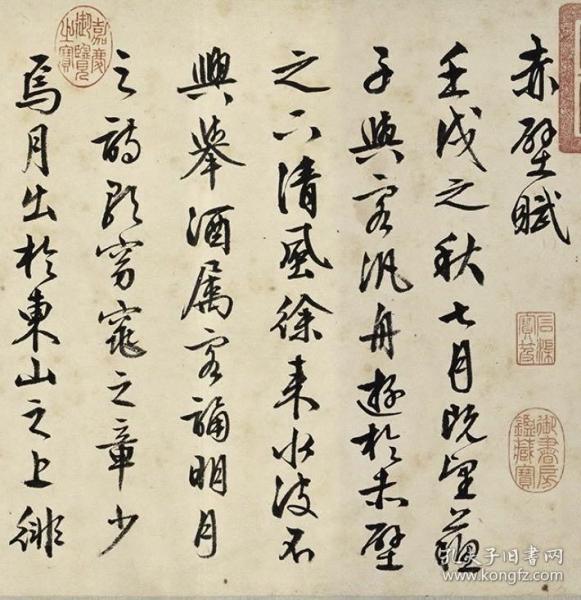 赤壁賦
壬戌之秋七月既望蘇
子與客汎舟遊於赤壁
之下清風徐来水波不
興舉酒属客誦明月
之詩歌窈窕之章少
焉月出於東山之上徘
嘉慶御覽之寶
石渠寶笈
御書房鑑藏寶
孔夫子旧书网
www.kongfz.com